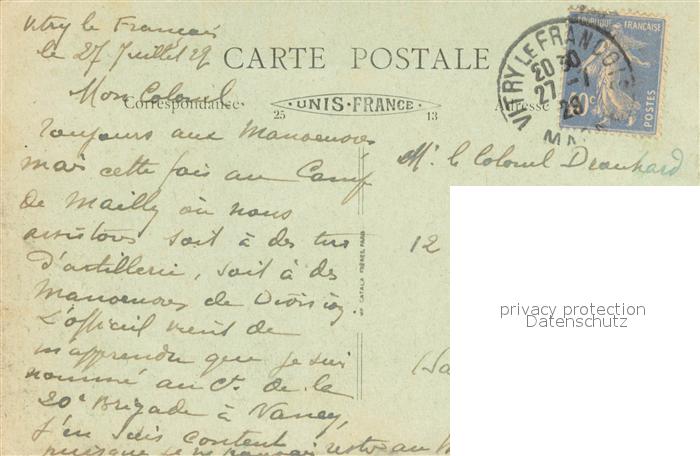 Vitry le François
le 27 Juillet 29
CARTE POSTALE
Mon Colonel
Correspondance
UNIS-FRANCE
25 13
Adresse
RÉPUBLIQUE FRANÇAISE
POSTES
VITRY LE FRANÇOIS
20 30
27 -
29
Toujours aux Manoeuvres
mais cette fois au Camp
de Mailly où nous
assistons soit à des tirs
d'artillerie, soit à des
Manoeuvres de Division.
L'officiel vient de
m'apprendre que je suis
nommé au Ct. de la
20e Brigade à Nancy,
J'en suis content
puisque je ne pouvais rester au
Mr. le Colonel Drouhard
12
(Sa
CATALA FRÈRES, PARIS
privacy protection
Datenschutz